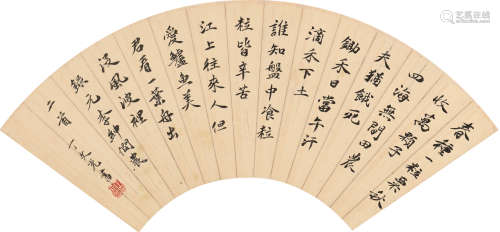 春種一粒粟秋
收萬顆子
四海無閒田農
夫猶餓死
鋤禾日當午汗
滴禾下土
誰知盤中食粒
粒皆辛苦
江上往來人但
愛鱸魚美
君看一葉舟出
沒風波裡
錄元李紳憫農
二首 丁文光書